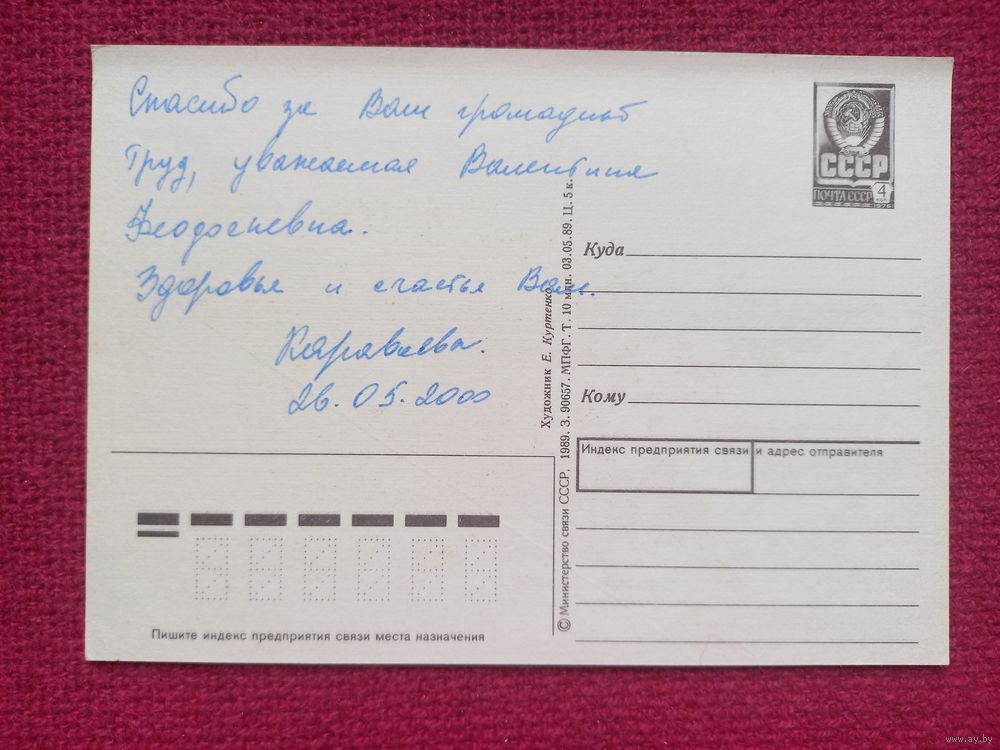 Спасибо за Ваш громадный
труд, уважаемая Валентина
Феодосиевна.
Здоровья и счастья Вам.
Караваева.
26.05.2000
СССР
ПОЧТА СССР
4
КОП
1976
Куда
Кому
Индекс предприятия связи и адрес отправителя
Художник Е. Куртенко
© Министерство связи СССР, 1989. З. 90657. МПФГ. Т. 10 млн. 03.05.89. Ц. 5 к.
Пишите индекс предприятия связи места назначения
www.ay.by